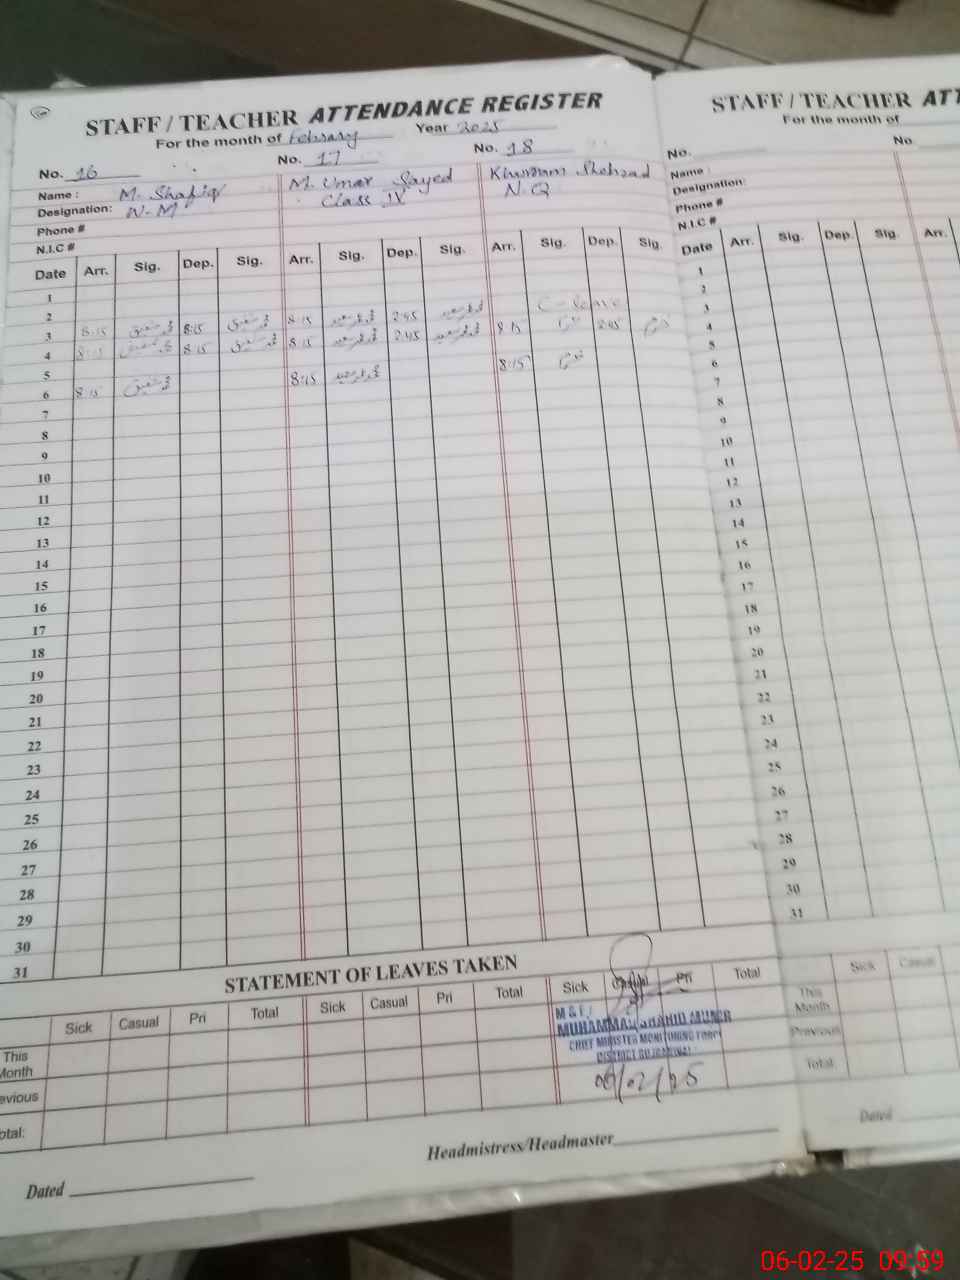 STAFF / TEACHER ATTENDANCE REGISTER
For the month of February Year 2025
No. 16 No. 17 No. 18
Name : M. Shafiq M. Umar Sayed Khurram Shehzad
Designation: N-M Class IV N.Q
Phone #
N.I.C #
Date Arr. Sig. Dep. Sig. Arr. Sig. Dep. Sig. Arr. Sig. Dep. Sig.
1
2
3 8:15 محمد شفیق 8:15 محمد شفیق 8:15 محمد عمر سعید 2:45 محمد عمر سعید C-leave
4 8:15 محمد شفیق 8:15 محمد شفیق 8:15 محمد عمر سعید 2:45 محمد عمر سعید 8:15 خرم 2:45 خرم
5
6 8:15 محمد شفیق 8:15 محمد عمر سعید 8:15 خرم
7
8
9
10
11
12
13
14
15
16
17
18
19
20
21
22
23
24
25
26
27
28
29
30
31
STATEMENT OF LEAVES TAKEN
Sick Casual Pri Total Sick Casual Pri Total Sick Pri Total
This Month
evious
otal:
M & E
MUHAMMAD SHAHID MUNIR
CHIEF MINISTER MONITORING FORCE
DISTRICT
06/02/25
Headmistress/Headmaster
Dated
STAFF / TEACHER ATT
For the month of
No. No.
Name :
Designation:
Phone #
N.I.C #
Date Arr. Sig. Dep. Sig. Arr.
1
2
3
4
5
6
7
8
9
10
11
12
13
14
15
16
17
18
19
20
21
22
23
24
25
26
27
28
29
30
31
Sick Casual
This Month
Previous
Total
Dated
06-02-25 09:59